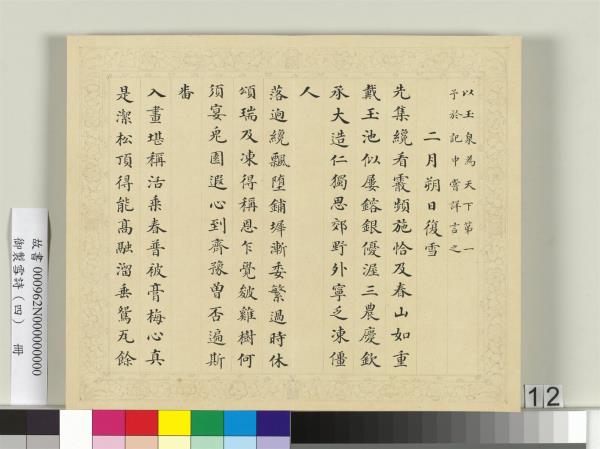 以玉泉為天下第一
予於記中嘗詳言之
二月朔日復雪
先集纔看霰頻施恰及春山如重
戴玉池似屢鎔銀優渥三農慶欽
承大造仁獨思郊野外寧乏凍僵
人
落迥纔飄墮鋪墀漸委繁過時休
頌瑞及凍得稱恩乍覺皴雞樹何
須宴兎園遐心到齊豫曾否遍斯
番
入畫堪稱活乘春普被膏梅心真
是潔松頂得能高融溜垂鴛瓦餘
故書000962N000000000
御製雪詩(四) 冊
12